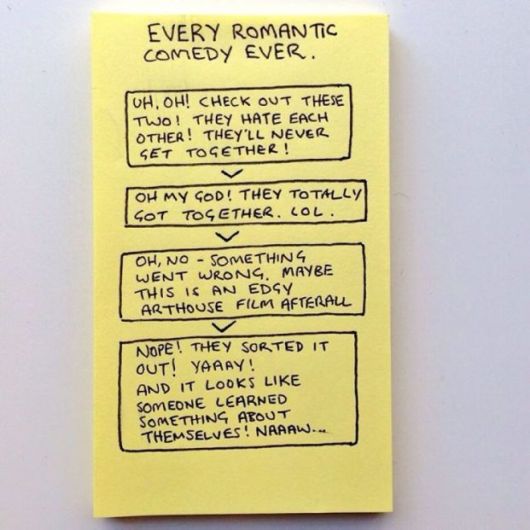 EVERY ROMANTIC
COMEDY EVER.
UH, OH! CHECK OUT THESE
TWO! THEY HATE EACH
OTHER! THEY'LL NEVER
GET TOGETHER!
OH MY GOD! THEY TOTALLY
GOT TOGETHER. LOL.
OH, NO - SOMETHING
WENT WRONG. MAYBE
THIS IS AN EDGY
ARTHOUSE FILM AFTERALL
NOPE! THEY SORTED IT
OUT! YAAAY!
AND IT LOOKS LIKE
SOMEONE LEARNED
SOMETHING ABOUT
THEMSELVES! NAAAW...